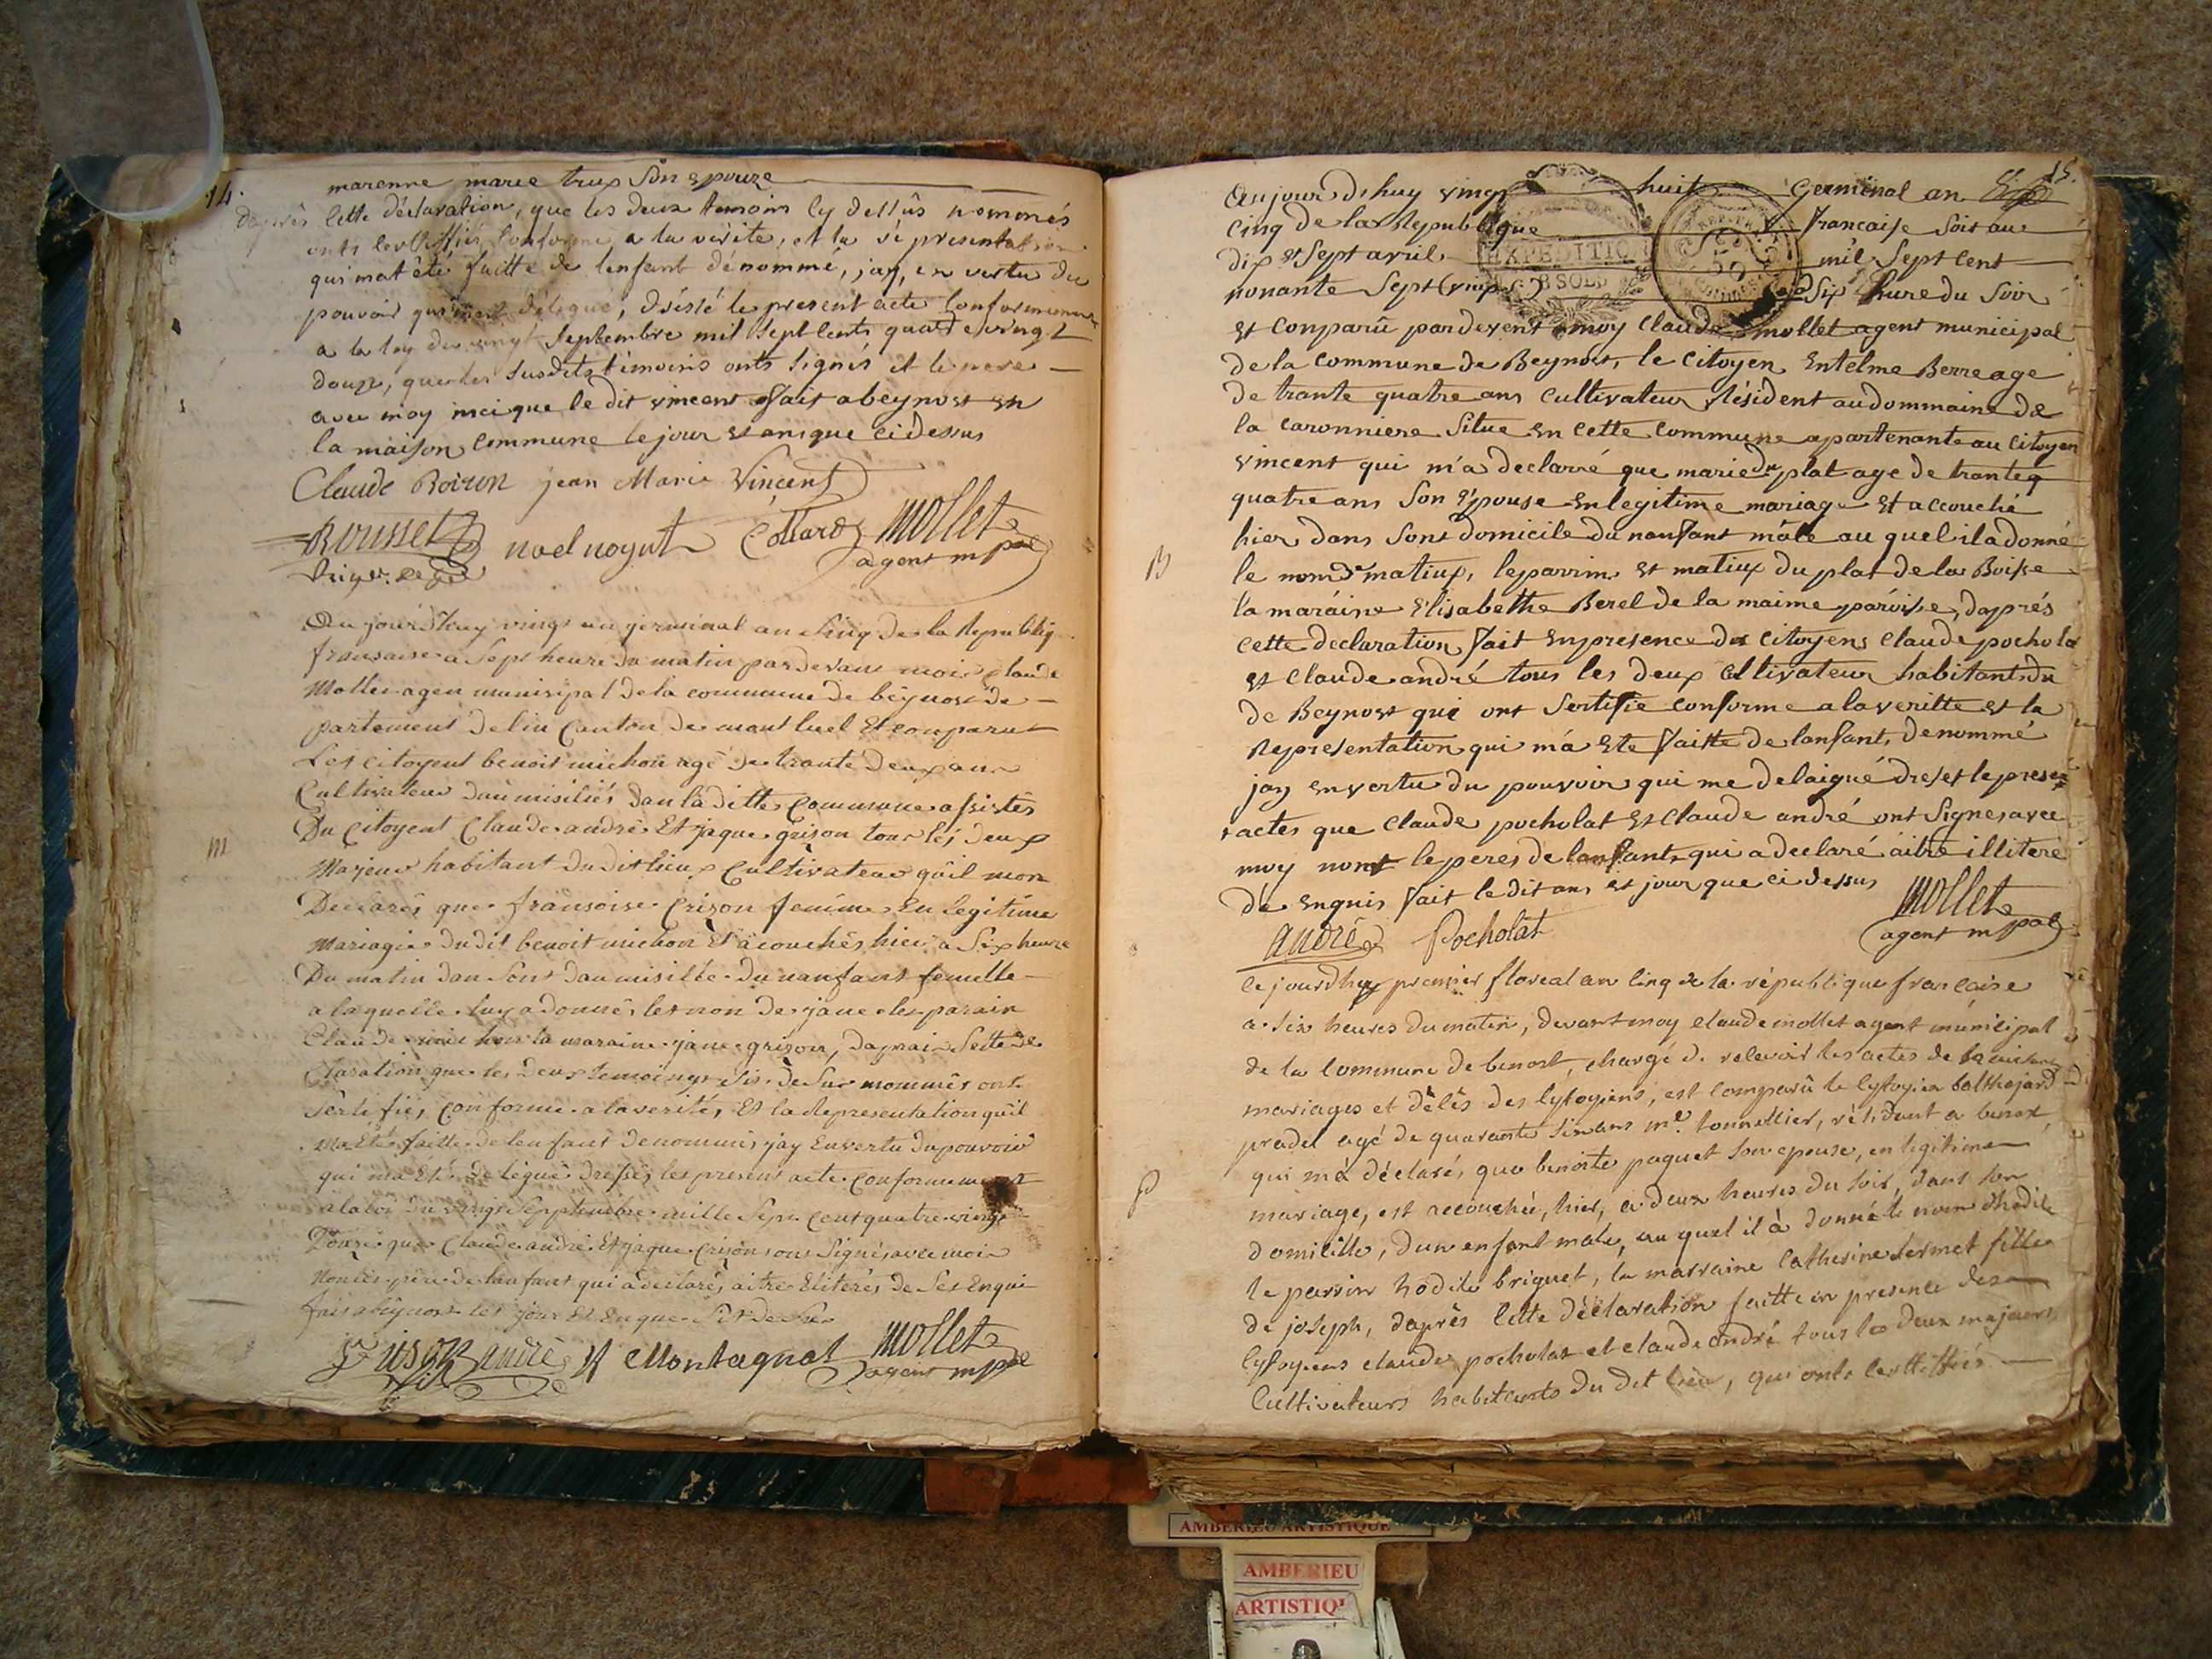 14.
marenne marie trux son epouze
daprès cette déclaration, que les deux temoins cy dessûs nommés
onts certiffiés conforme a la vérité, et la représentation
qui mat été faitte de lenfant dénommé, jay, en vertu du
pouvoir qui mest délégué, dréssé le present acte conformement
a la loy du vingt septembre mil sept cents quatre vingt
douze, que les susdits témoins onts signés et le pere
avec moy incique le dit vincent fait a beynost en
la maison commune le jour et an que ci dessus
Claude Boiron jean Marie Vincent
Rousset noel noyut Collard mollet
agent mpal
Au jourdhuy vingt un germinal an sinq de la Republiq
fransaise a sept heure du matin pardevant moi claude
Mollet agen munisipal de la commune de béynost de
partement de lin canton de mont luel Et comparut
Les citoyent benoit michon agé de trante deux ans
Cultivateur daumisiliés dan la ditte commune assistés
Du citoyent Claude andre Et jaque grison tous les deux
m
Majeur habitant du dit lieux Cultivateur qu'il mon
Déclarés que fransoise Crison femme En legitime
Mariagie du dit benoit michon Et acouchés hier a six heure
Du matin dan sont daumisille du nanfant femelle
a laquelle luy a donnés les non de jane les parain
Claude michon la maraine jane grison, daprai sette de
claration que les deux temoingt sis desur nommés ont
sertifiés conforme a la verités Et la Representation quil
ma Eté faitte de lenfant denommés jay En vertu du pouvoir
qui ma Eté délégué dréssés les present acte conformement
a la loi du vingt septembre mille sept cent quatre vingt
Douze que Claude andre Et jaque Crison ont signés avec moi
Non les pere de lanfant qui a déclarés aitre Eliterés de ses Enqui
fait a beynost les jour Et En que sit desur
grison andré Montagnat mollet
agent mpal
15.
Aujourdhuy vingt huit Germinal an
cinq de la Republique francaise soit au
dix et sept avril mil sept cent
EXPEDITION
8 SOLS
nonante sept six hure du soir
Et conparû pardevent moy claude mollet agent municipal
de la commune de Beynost, le citoyen Entelme Berre age
de trante quatre ans cultivateur Résident au dommaine de
la caronniere situe en cette commune apartenante au citoyen
vincent qui m'a declarré que marie du plat age de trante
quatre ans son Epouse en legitime mariage et accouché
hier dans sont domicile du nanfant mâle au quel il a donné
B
le nom de matiux, le parrim et matiux du plat de la Boisse
la maraine Elisabethe Berel de la maime paroisse, daprés
cette declaration fait en presence de citoyens claude pocholat
et claude andré tous les deux cultivateur habitants du
de Beynost qui ont sertifie conforme a la veritte et la
Representation qui m'a este faitte de lanfant denommé
jay en vertu du pouvoir qui me delaigué dreset le presen
t actes que claude pocholat et claude andré ont signes avec
moy nont le peres de lanfant qui a declaré aitre illiteré
de enquis fait le dit ans et jour que ci dessus mollet
andré Pocholat agent mpal
ce jourdhuy premier floreal an cinq de la république francaise
a six heures du matin, devant moy claude mollet agent municipal
de la commune de benost, chargé de recevoir les actes de
mariages et décès des cytoyiens, est comparû le cytoyien balthazard
pradel agé de quarante six ans md. tonnellier, résidant a benost
P
qui ma déclaré, que benoite paquet son epouse, en legitime
mariage, est accouchée, hier, a deux heures du soir, dans son
domicille, dun enfant male, au quel il à donné le nom dhodile
le parrin hodile briguet, la marraine Catherine sermet fille
de joseph, daprès cette déclaration faitte en presence des
cytoyiens claude pocholat et claude andré tous les deux majeurs
cultivateurs habitants du dit lieu, qui onts certiffiés
AMBERIEU ARTISTIQUE
AMBERIEU
ARTISTIQU